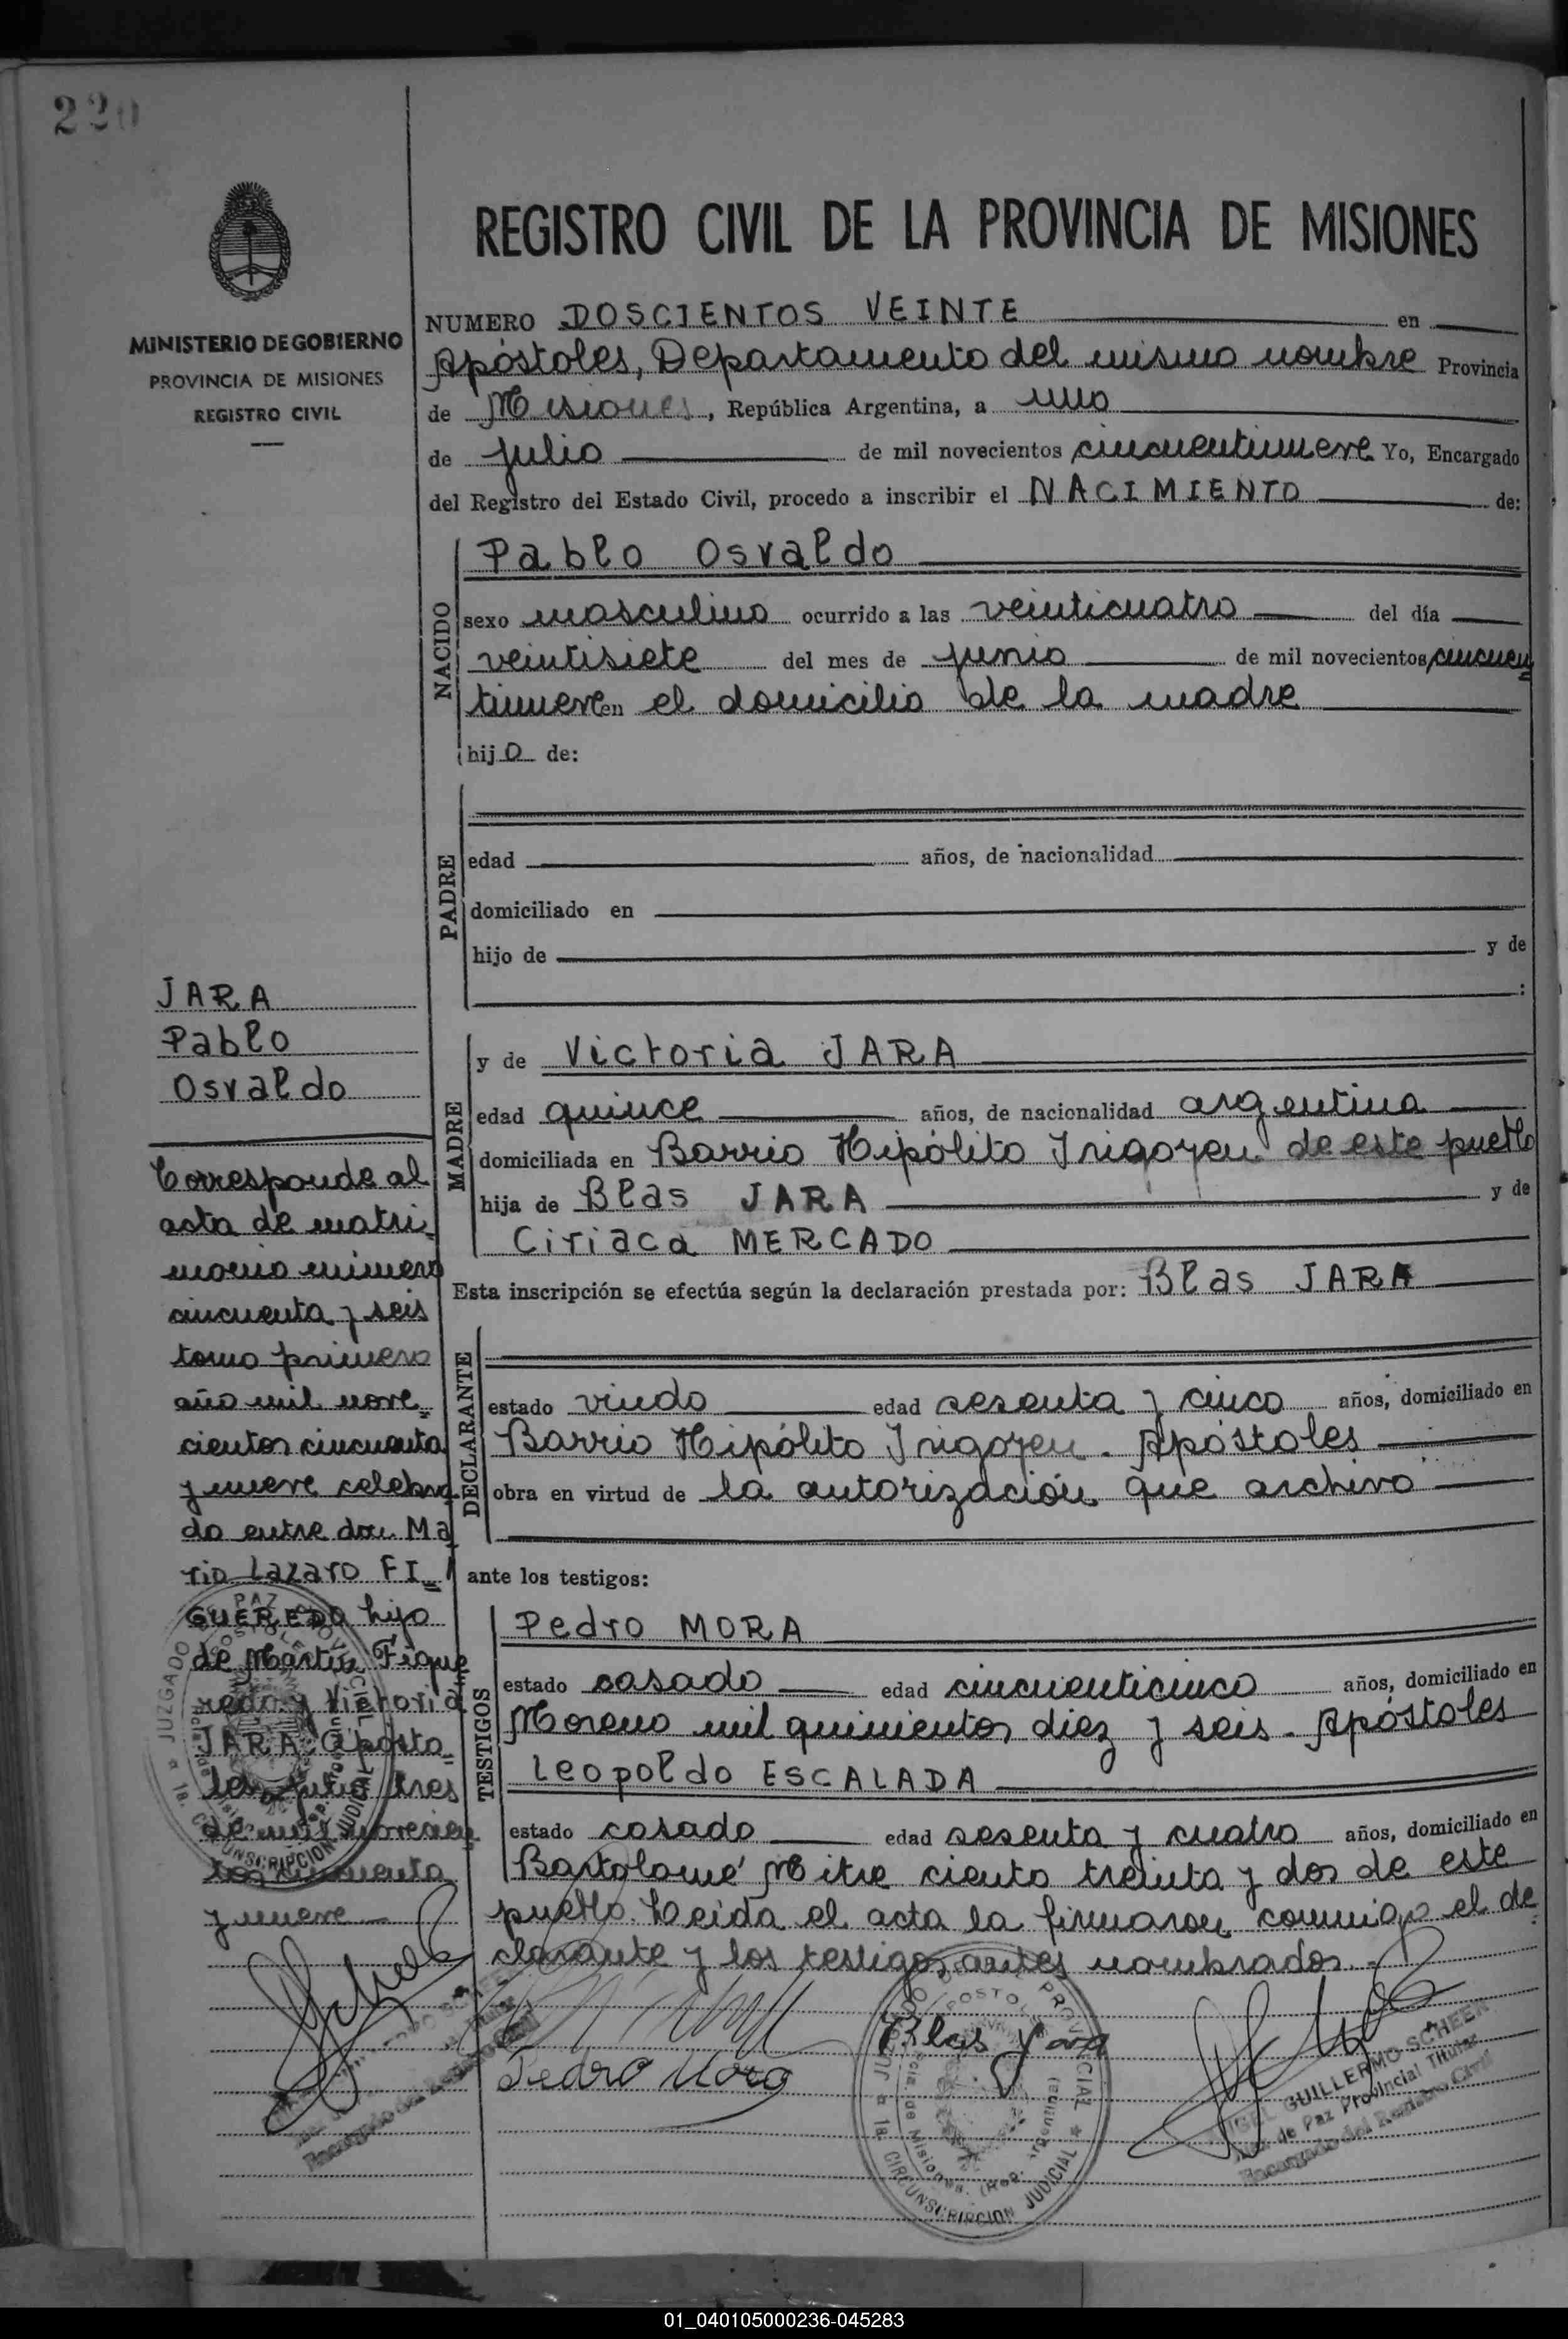 220
REGISTRO CIVIL DE LA PROVINCIA DE MISIONES
MINISTERIO DE GOBIERNO
PROVINCIA DE MISIONES
REGISTRO CIVIL
NUMERO DOSCIENTOS VEINTE en
Apóstoles, Departamento del mismo nombre Provincia
de Misiones, República Argentina, a uno
de julio de mil novecientos cincuentinueve Yo, Encargado
del Registro del Estado Civil, procedo a inscribir el NACIMIENTO de:
NACIDO
Pablo Osvaldo
sexo masculino ocurrido a las veinticuatro del día
veintisiete del mes de junio de mil novecientos cincuen
tinueve en el domicilio de la madre
hijo de:
PADRE
edad años, de nacionalidad
domiciliado en
hijo de y de
:
JARA
Pablo
Osvaldo
MADRE
y de Victoria JARA
edad quince años, de nacionalidad argentina
domiciliada en Barrio Hipólito Irigoyen de este pueblo
hija de Blas JARA y de
Ciriaca MERCADO
Esta inscripción se efectúa según la declaración prestada por: Blas JARA
DECLARANTE
estado viudo edad sesenta y cinco años, domiciliado en
Barrio Hipólito Irigoyen. Apóstoles
obra en virtud de la autorización que archivo
ante los testigos:
TESTIGOS
Pedro MORA
estado casado edad cincuenticinco años, domiciliado en
Moreno mil quinientos diez y seis. Apóstoles
Leopoldo ESCALADA
estado casado edad sesenta y cuatro años, domiciliado en
Bartolomé Mitre ciento treinta y dos de este
pueblo. Leida el acta la firmaron conmigo el de
clarante y los testigos antes nombrados.
Corresponde al
acta de matri
monio número
cincuenta y seis
tomo primero
año mil nove
cientos cincuenta
y nueve celebra
do entre don Ma
rio Lazaro FI
GUEREDO hijo
de Martin Figue
redo y Victoria
JARA. Aposto
les, Julio tres
de mil novecien
tos cincuenta
y nueve
Pedro Mora
Blas Jara
ANGEL GUILLERMO SCHEER
Juez de Paz Provincial Titular
Encargado del Registro Civil
Encargado del Registro Civil
JUZGADO DE PAZ PROVINCIAL
APOSTOLES
1a. CIRCUNSCRIPCION JUDICIAL
01_040105000236-045283